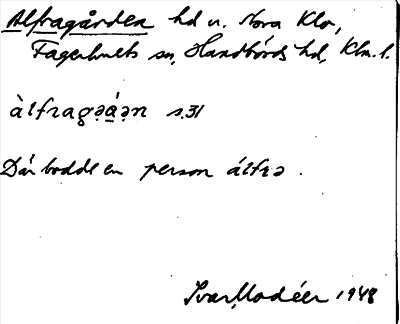 Alfragården hd u. Norra Klm,
Fagerhults sn, Handbörds hd, Klm. l.
àlfraga̤á̤ən s. 31
Där bodde en person álfrə.
Ivar Modéer 1948